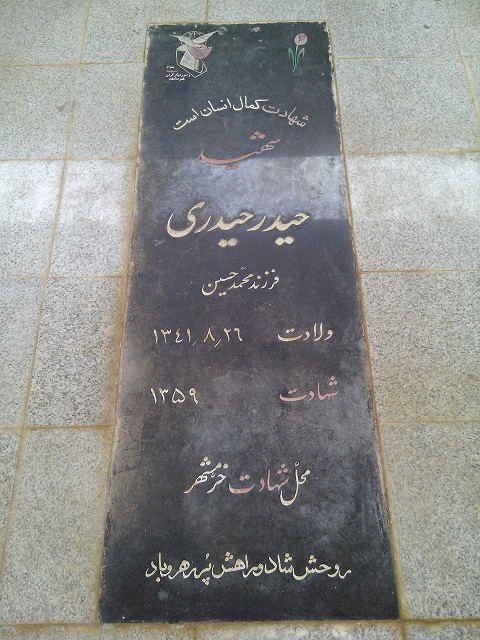 شهادت کمال انسان است
شهید
حیدر حیدری
فرزند محمد حسین
ولادت ۱۳۴۱٫۸٫۲۶
شهادت ۱۳۵۹
محل شهادت خرمشهر
روحش شاد و راهش پر رهرو باد